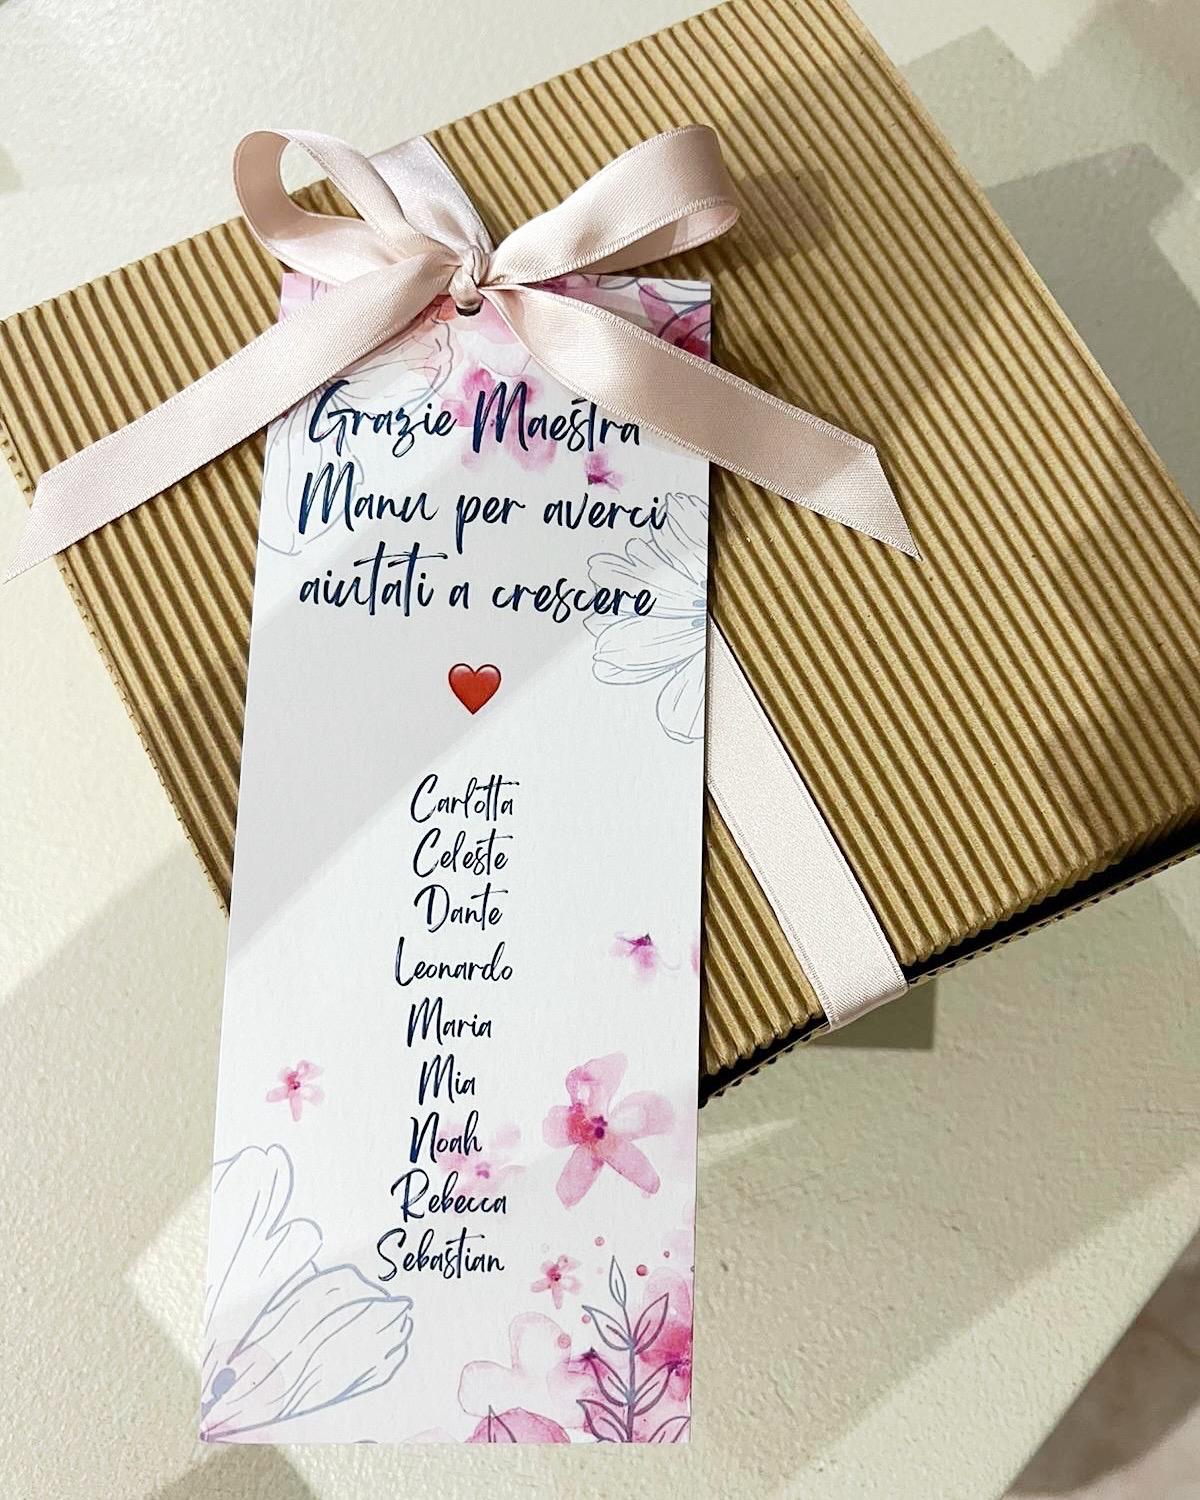 Grazie Maestra
Manu per averci
aiutati a crescere
Carlotta
Celeste
Dante
Leonardo
Maria
Mia
Noah
Rebecca
Sebastian